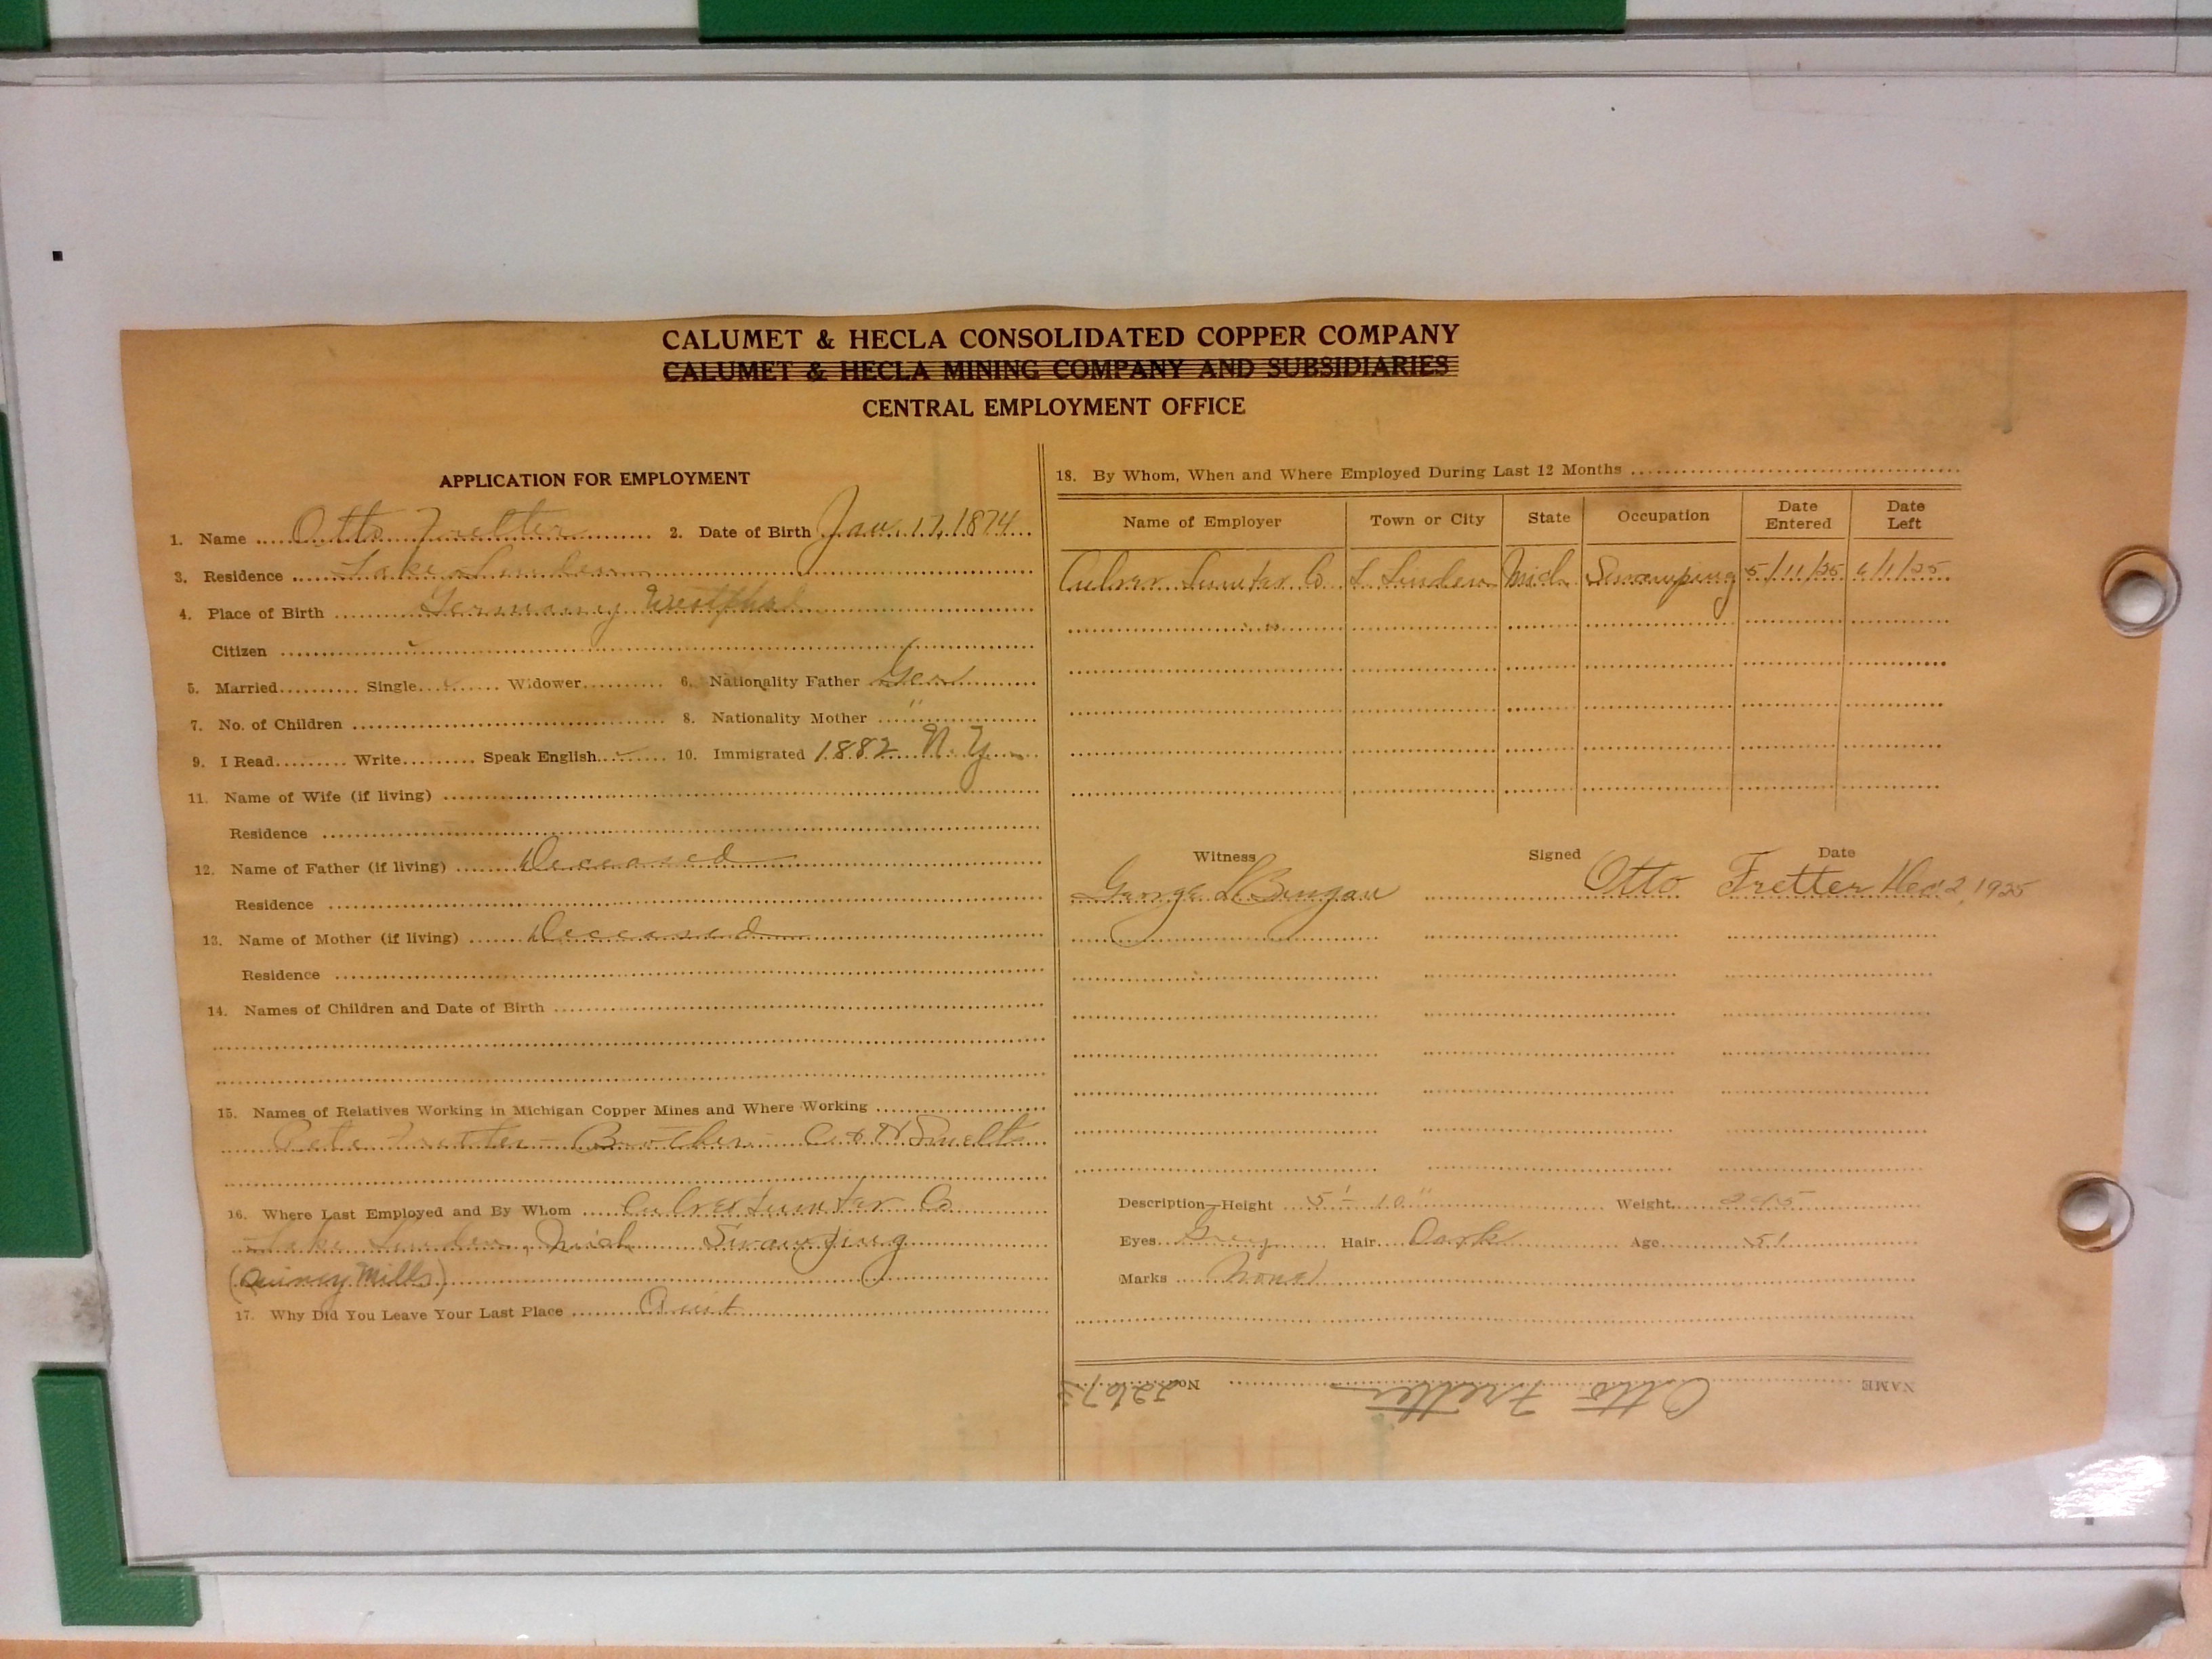 CALUMET & HECLA CONSOLIDATED COPPER COMPANY
CALUMET & HECLA MINING COMPANY AND SUBSIDIARIES
CENTRAL EMPLOYMENT OFFICE
APPLICATION FOR EMPLOYMENT
1. Name Otto Fretter 2. Date of Birth Jan. 17, 1874
3. Residence Lake Linden
4. Place of Birth Germany Westphal
Citizen ✓
5. Married Single ✓ Widower 6. Nationality Father Ger
7. No. of Children 8. Nationality Mother "
9. I Read Write Speak English ✓ 10. Immigrated 1882 N.Y.
11. Name of Wife (if living)
Residence
12. Name of Father (if living) Deceased
Residence
13. Name of Mother (if living) Deceased
Residence
14. Names of Children and Date of Birth
15. Names of Relatives Working in Michigan Copper Mines and Where Working
Pete Fretter - Brother - C & H Smelts
16. Where Last Employed and By Whom Culver Lumber Co
Lake Linden, Mich Swamping
(Quincy Mills)
17. Why Did You Leave Your Last Place Quit
18. By Whom, When and Where Employed During Last 12 Months
Name of Employer Town or City State Occupation Date Entered Date Left
Culver Lumber Co. L Linden Mich Swamping 5/11/25 /1/25
Witness Signed Date
George Otto Fretter Dec 2, 1925
Description—Height 5'-10" Weight
Eyes Grey Hair Dark Age 51
Marks None
NAME Otto Fretter No.